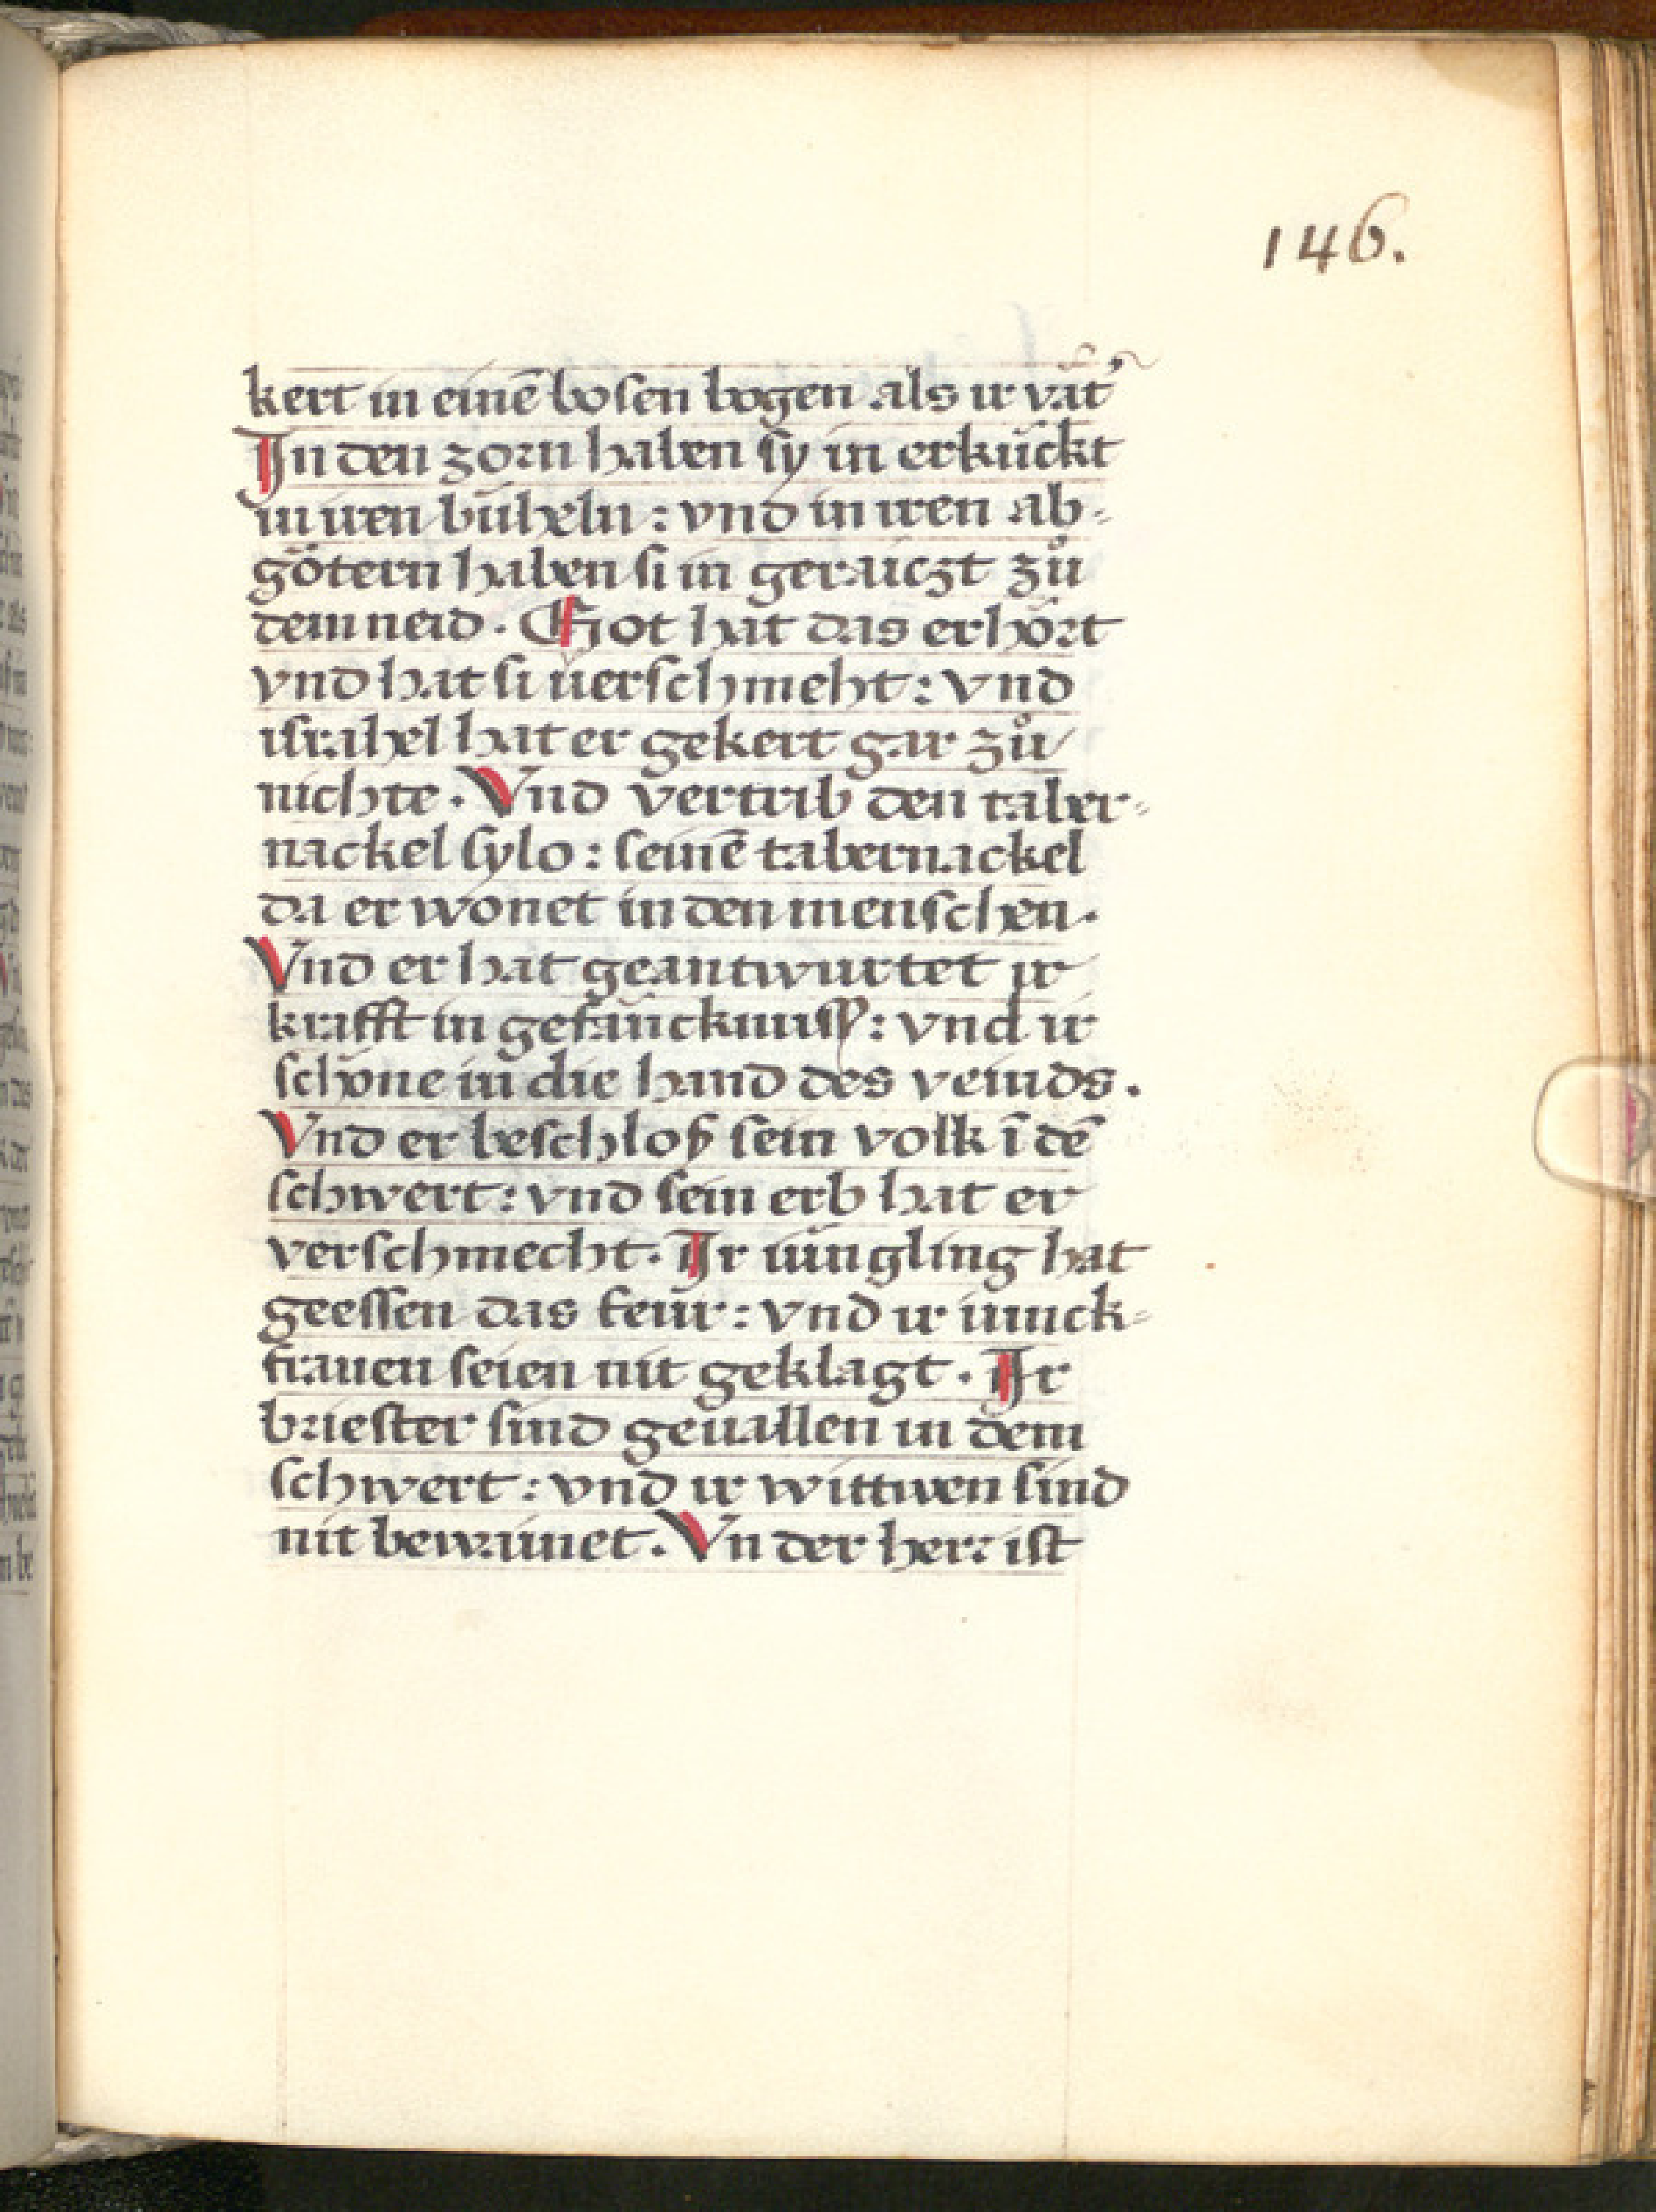 146.
kert in einē bosen bogen als ir vät’
In den zorn haben sy in erkückt
in iren büheln : vnd in iren ab⸗
götern haben si in geraiczt zů
dem neid . Got hat das erhört
vnd hat si uerschmeht : vnd
israhel hat er gekert gar zů
nichte . Vnd vertrib den taber⸗
nackel sylo : seinē tabernackel
da er wonet in den menschen .
Vnd er hat geantwurtet ir
krafft in gefäncknuß : vnd ir
schöne in die hand des veinds .
Vnd er beschloß sein volk ī dē
schwert : vnd sein erb hat er
verschmecht . Ir iüngling hat
geessen das feür : vnd ir iunck⸗
frauen seien nit geklagt . Ir
briester sind geuallen in dem
schwert : vnd ir wittwen sind
nit bewainet . Vn der herr ist